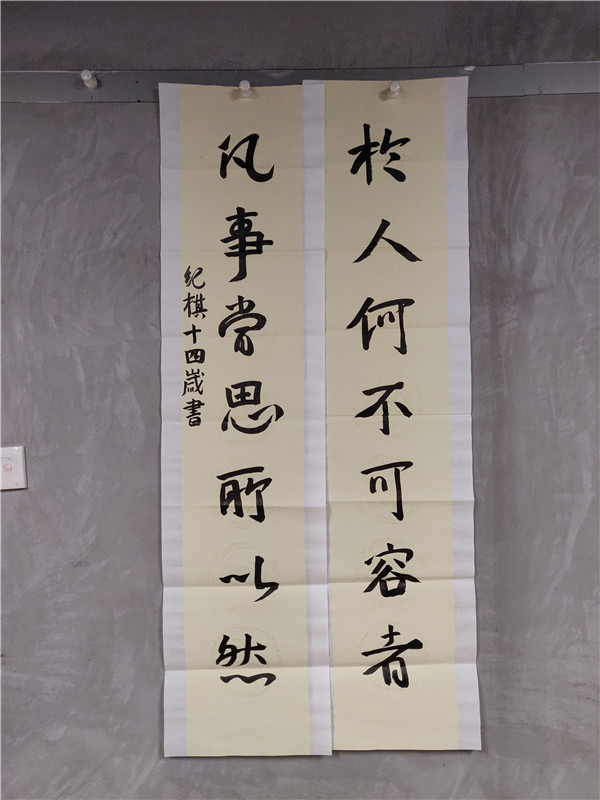 於人何不可容者
凡事當思所以然
紀棋十四歲書